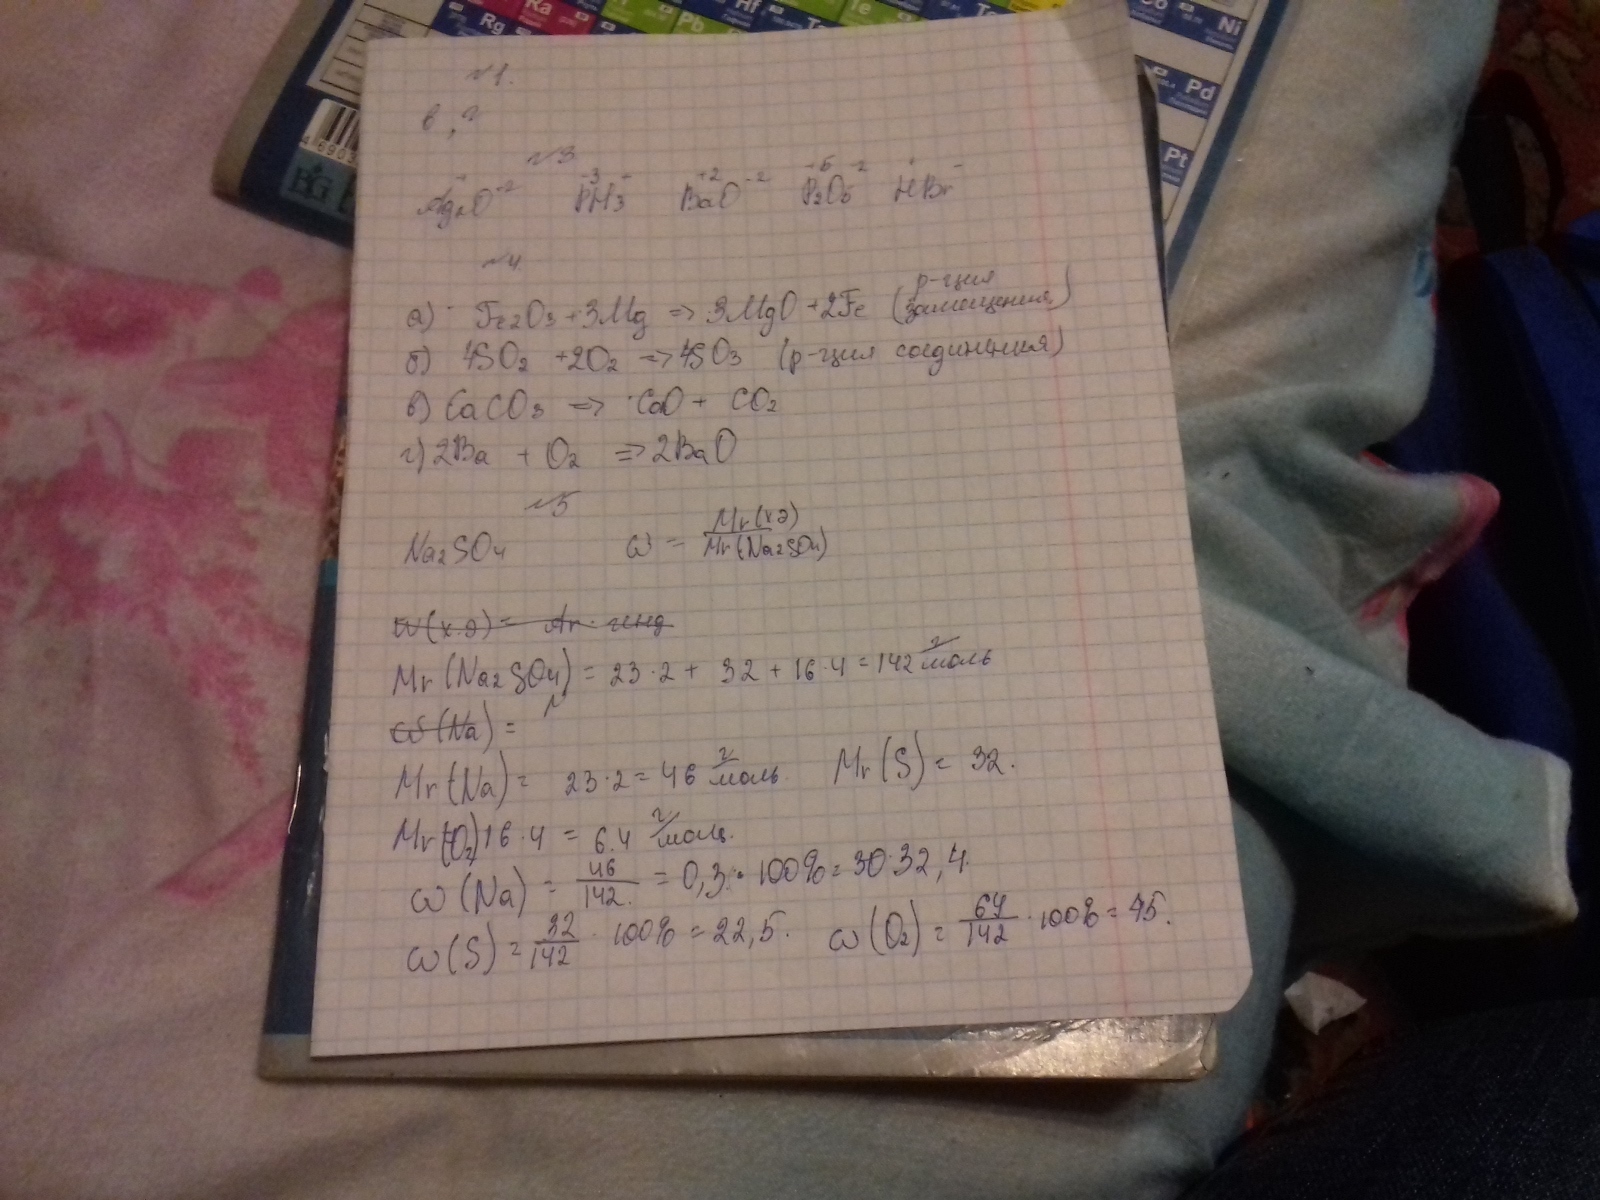 Rg Ra Pb Hf Te Ni
Pd
Pt
№1.
в, г
№3
Ag₂O⁻² P⁻³H₃ Ba⁺²O⁻² P₂O₅⁻² HBr⁻
№4.
а) Fe₂O₃ + 3Mg => 3MgO + 2Fe (р-ция замещения)
б) 4SO₂ + 2O₂ => 4SO₃ (р-ция соединения)
в) CaCO₃ => CaO + CO₂
г) 2Ba + O₂ => 2BaO
№5
Na₂SO₄ ω = Mr(хэ)/Mr(Na₂SO₄)
w(х.э) = Ar·
Mr(Na₂SO₄) = 23·2 + 32 + 16·4 = 142 г/моль
ω(Na) =
Mr(Na) = 23·2 = 46 г/моль. Mr(S) = 32.
Mr(O₂) 16·4 = 6.4 г/моль.
ω(Na) = 46/142 = 0,3 · 100% = 30 32,4.
ω(S) = 32/142 · 100% = 22,5. ω(O₂) = 64/142 · 100% = 45.